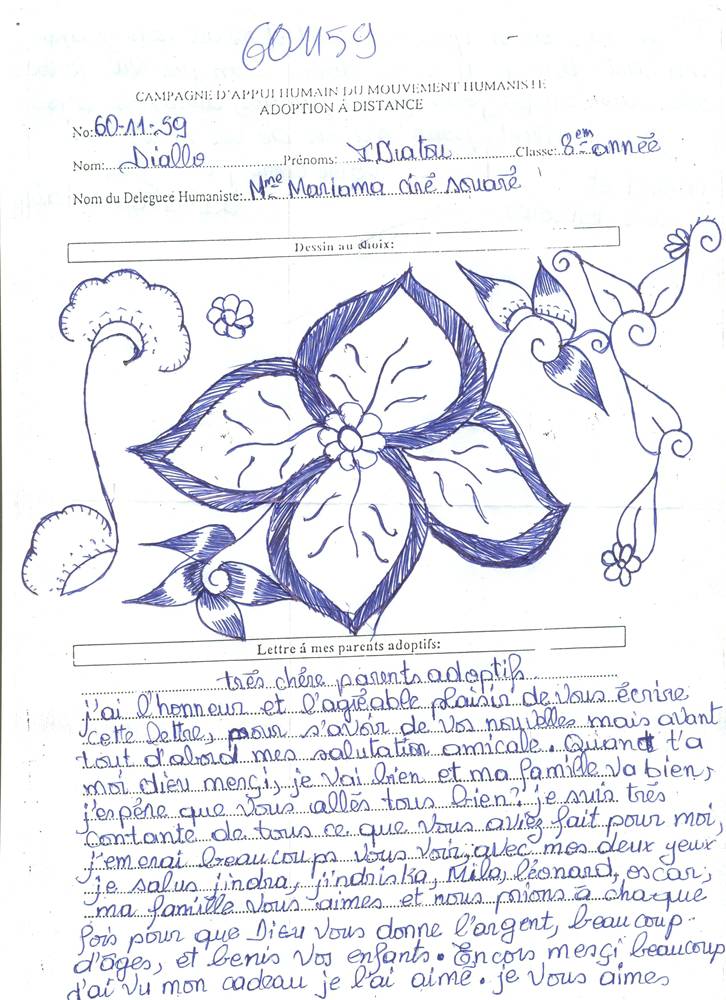 601159
CAMPAGNE D'APPUI HUMAIN DU MOUVEMENT HUMANISTE
ADOPTION Á DISTANCE
No: 60-11-59
Nom: Diallo Prénoms: Diatou Classe: 8em année
Nom du Delegueé Humaniste: Mme Mariama ciré souaré
Dessin au choix:
Lettre á mes parents adoptifs:
trés chére parents adoptifs
j'ai l'honneur et l'agréable plaisir de vous écrire
cette lettre, pour s'avoir de vos nouvelles mais avant
tout d'abord mes salutation amicale. Quant t'a
moi dieu merçi, je vai bien et ma famille va bien,
j'espére que vous allés tous bien? je suis trés
contante de tous ce que vous avez fait pour moi,
j'emerai beaucoups vous voir, avec mes deux yeux
je salus jindra, jindriska, Mila, léonard, oscar,
ma famille vous aimes et nous prions à chaque
fois pour que Dieu vous donne l'argent, beaucoup
d'âges, et benis vos enfants. Encors merçi beaucoup
j'ai vu mon cadeau je l'ai aimé. je vous aimes